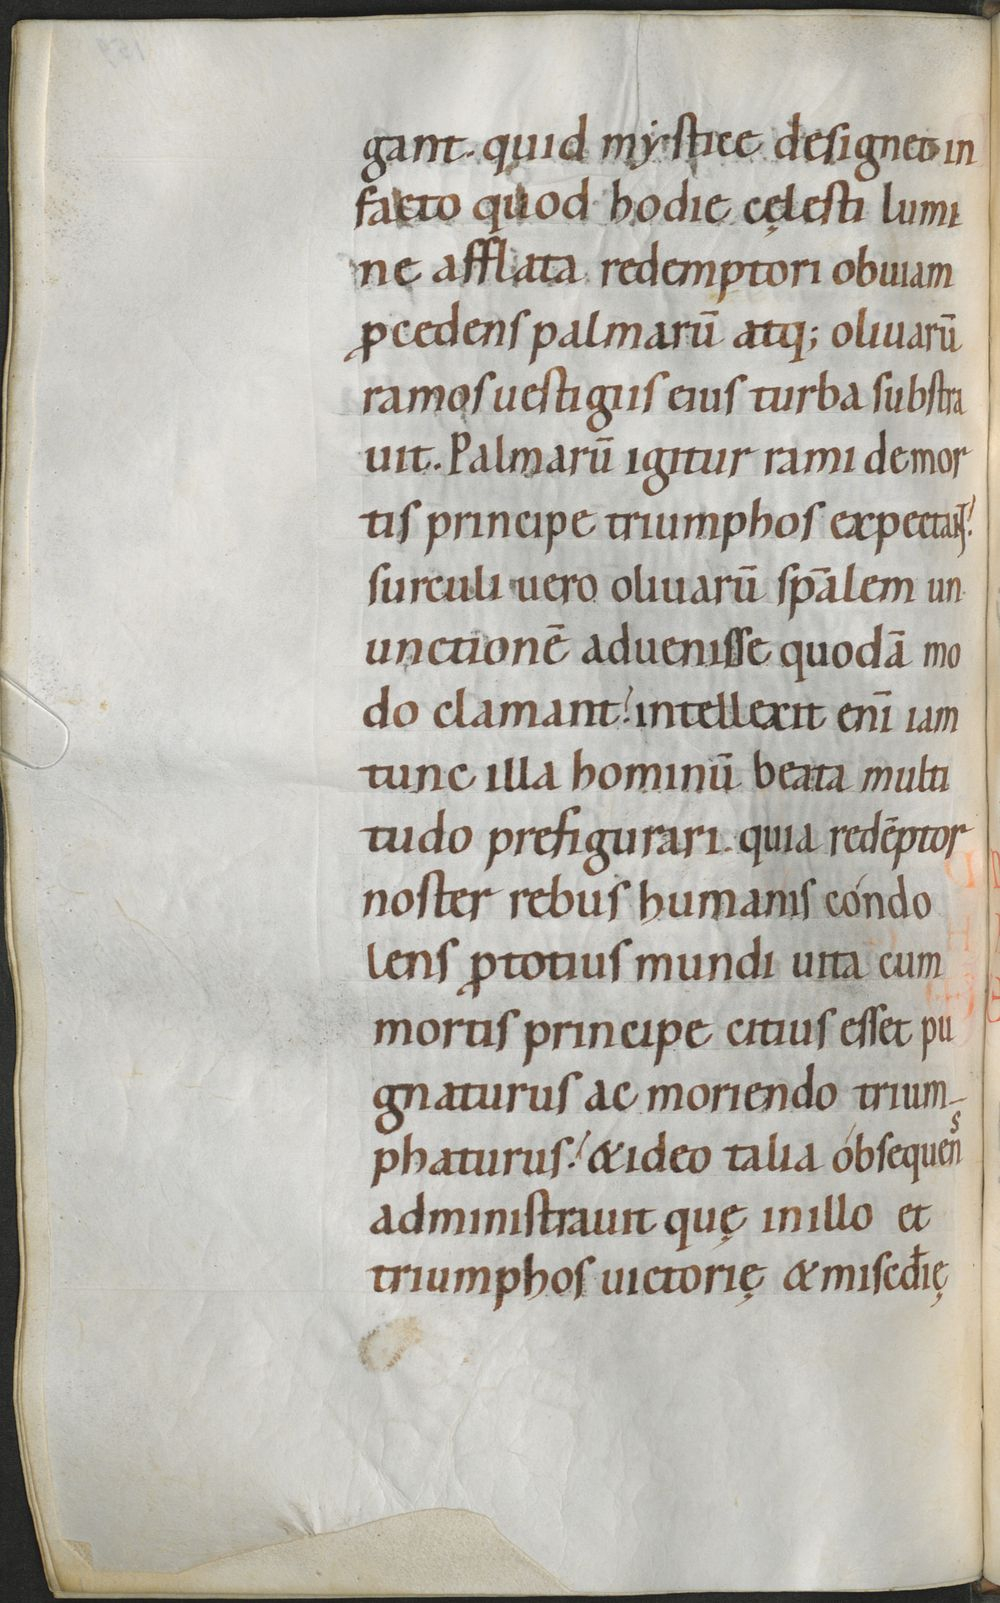 gant. quid mẏstice designet in
facto quod hodie cęlesti lumi
ne afflata redemptori obuiam
ꝓcedens palmarū atq; oliuarū
ramos uestigiis eius turba substra
uit. Palmarū igitur rami de mor
tis principe triumphos expectaɴᴛ
surculi uero oliuarū sp̄alem un
unctionē aduenisse quodā mo
do clamant. intellexit enī iam
tunc illa hominū beata multi
tudo prefigurari. quia redēptor
noster rebus humanis cóndo
lens ꝓ totius mundi uita cum
mortis principe citius esset pu
gnaturus ac moriendo trium-
phaturus. & ideo talia óbsequen̄s
administrauit quę in illo et
triumphos uictorię & misc̄dię